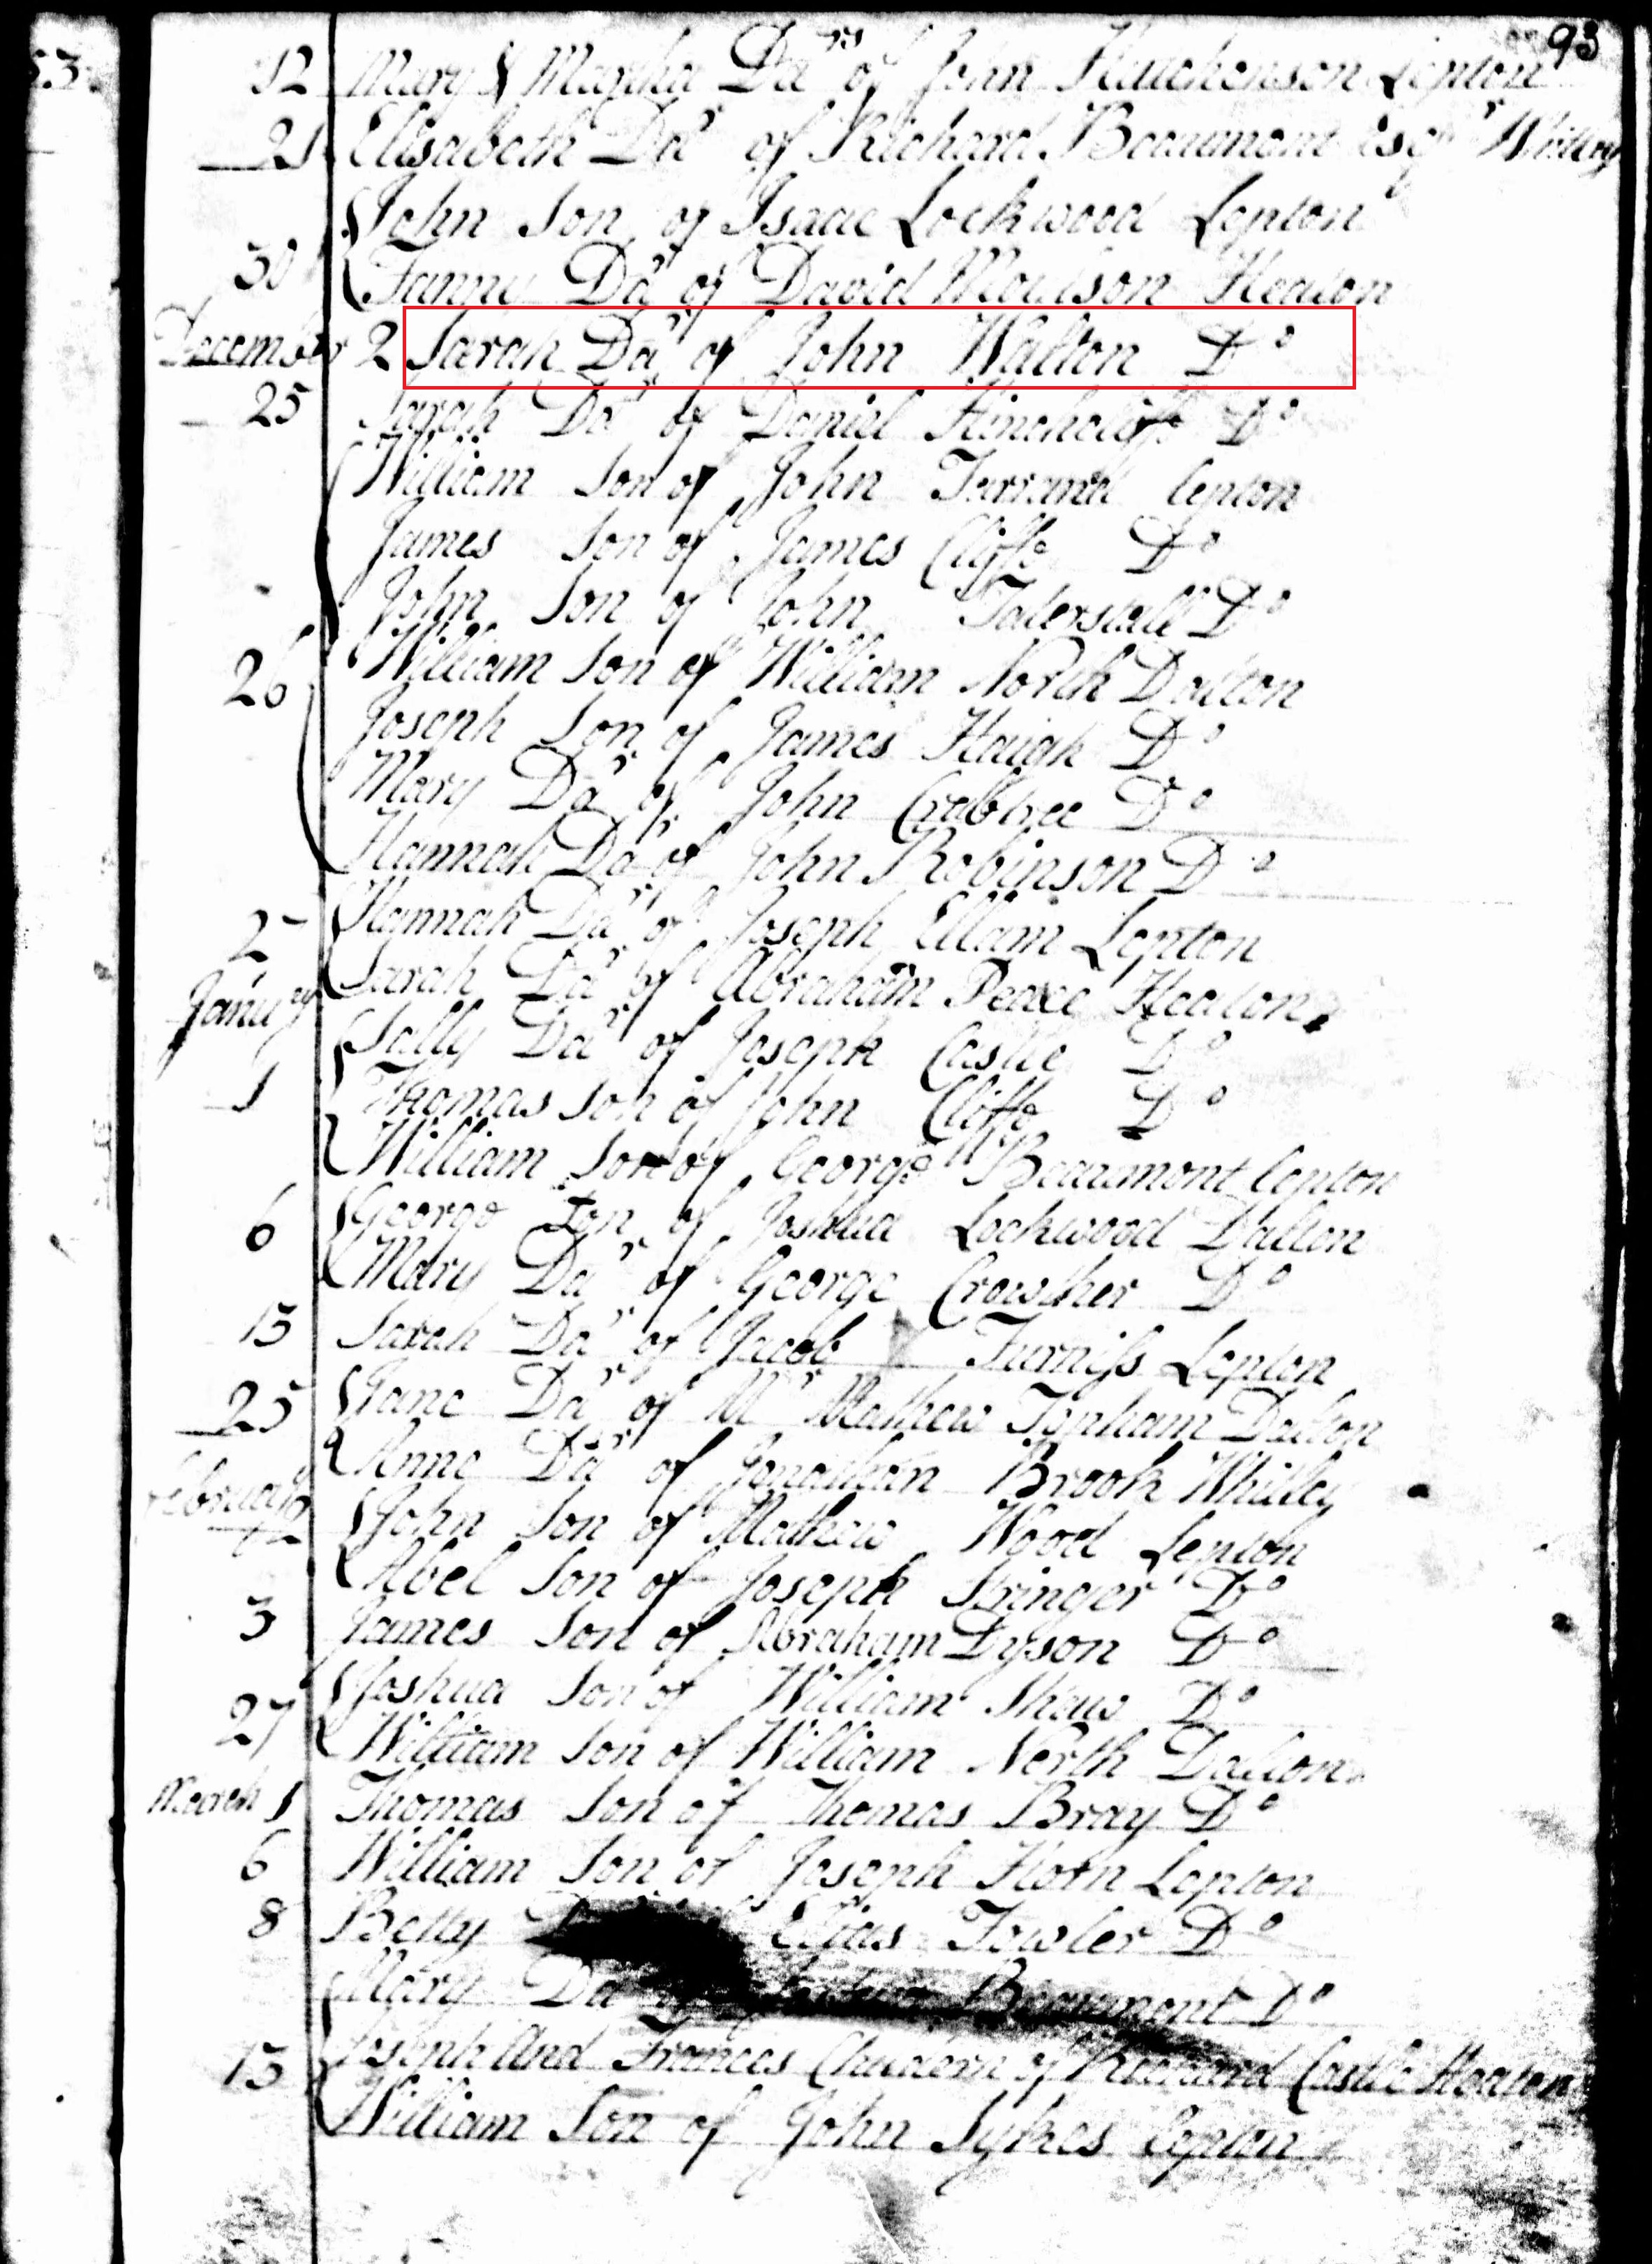 93
53
12 Mary & Martha Da.rs of John Hutchonson Lepton
21 Elisabeth Da.r of Richard Beaumont Esq.r Whitley
John Son of Isaac Lockwood Lepton
30 Fanny Da.r of David Moulson Heaton
December 2 Sarah Da.r of John Walton D.o
25 Sarah Da.r of Daniel Hinchcliffe D.o
William Son of John Farrand Lepton
James Son of James Cliffe D.o
John Son of John Taterstall D.o
26 William Son of William North Dalton
Joseph Son of James Haigh D.o
Mary Da.r of John Crabtree D.o
Hannah Da.r of John Robinson D.o
Hannah Da.r of Joseph Ellam Lepton
27 Sarah Da.r of Abraham Peace Heaton
Janu.ry Sally Da.r of Joseph Castle D.o
1 Thomas Son of John Cliffe D.o
William Son of George Beaumont Lepton
6 George Son of Joshua Lockwood Dalton
Mary Da.r of George Crowther D.o
15 Sarah Da.r of Jacob Furniss Lepton
25 Jane Da.r of M.r Mathew Topham Dalton
Anne Da.r of Jonathan Brook Whitley
February 2 John Son of Mathew Wood Lepton
Abel Son of Joseph Stringer D.o
3 James Son of Abraham Dyson D.o
Joshua Son of William Shaw D.o
27 William Son of William North Dalton
March 1 Thomas Son of Thomas Bray D.o
6 William Son of Joseph Lepton
8 Betty Elias Fowler D.o
Mary Da.r of Beaumont D.o
15 Joseph And Frances Childern of Richard Castle Heaton
William Son of John Sykes Lepton